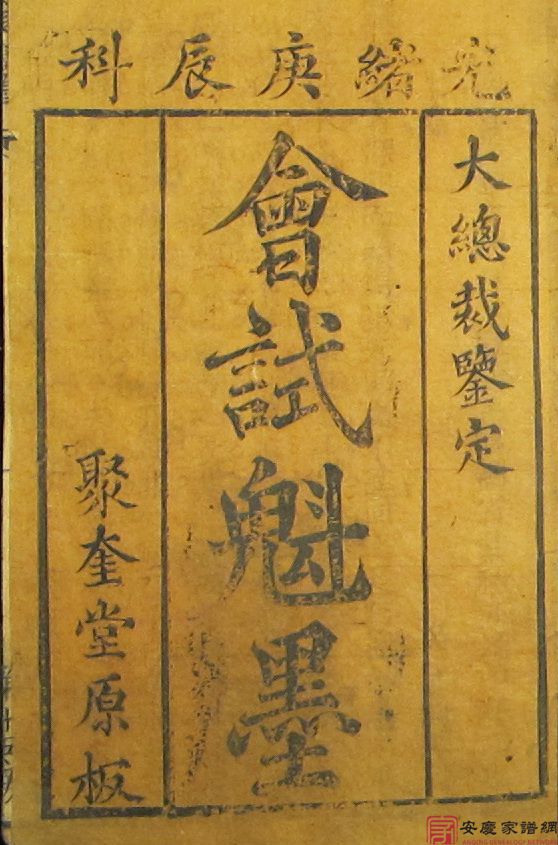 光緒庚辰科
大總裁鑒定
會試魁墨
聚奎堂原板
安慶家譜網